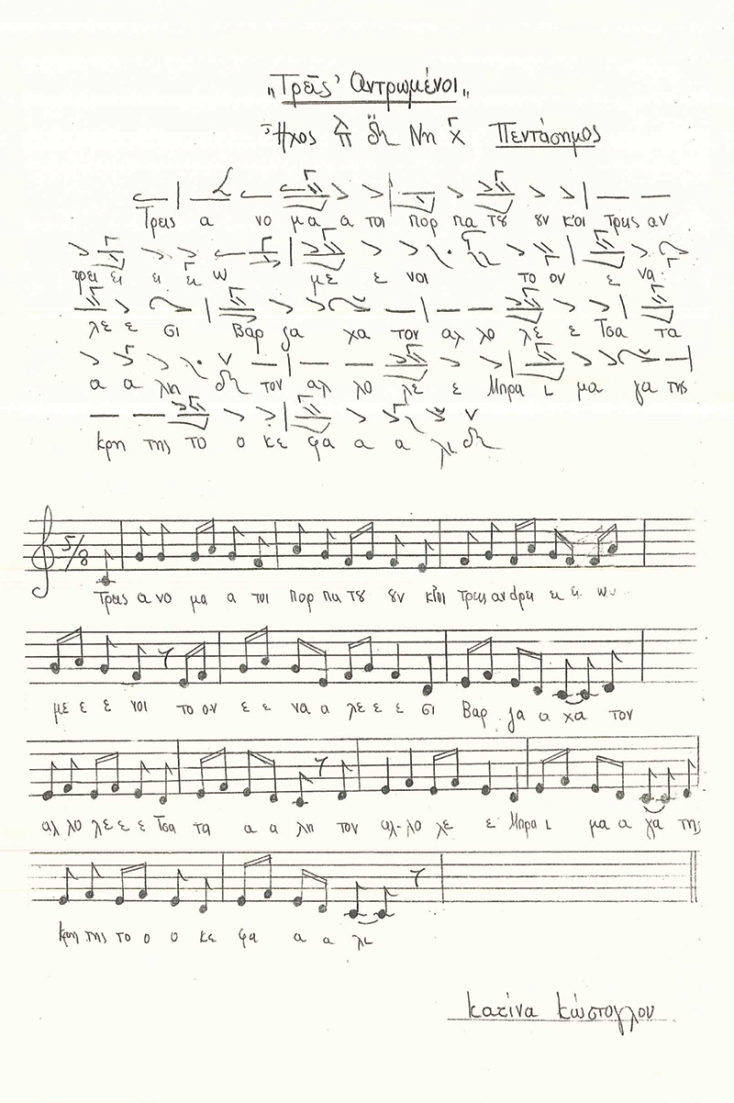 „Τρεῖς' Αντρωμένοι„
Ἦχος λ π δη Νη χ Πεντάσημος
Τρεις α νο μα α τοι πορ πα τȣ ȣν κι Τρεις αν
τρει ει ει ω με ε νοι το ον ε να
λε ε σι Βαρ γα χα τον αλ λο λε ε Τσα τα
α α λη τον αλ λο λε ε Μπρα ι μα γα της
κρη της το ο κε φα α α λι
5/8
Τρεις α νο μα α τοι πορ πα τȣ ȣν κι Τρεις αν δρει ει ει ω
με ε ε νοι το ον ε ε να α λε ε ε σι Βαρ γα α χα τον
αλ λο λε ε ε Τσα τα α α λη τον αλ-λο λε ε Μπρα ι μα α γα της
κρη της το ο ο κε φα α α λι
Κατίνα Κώστογλου